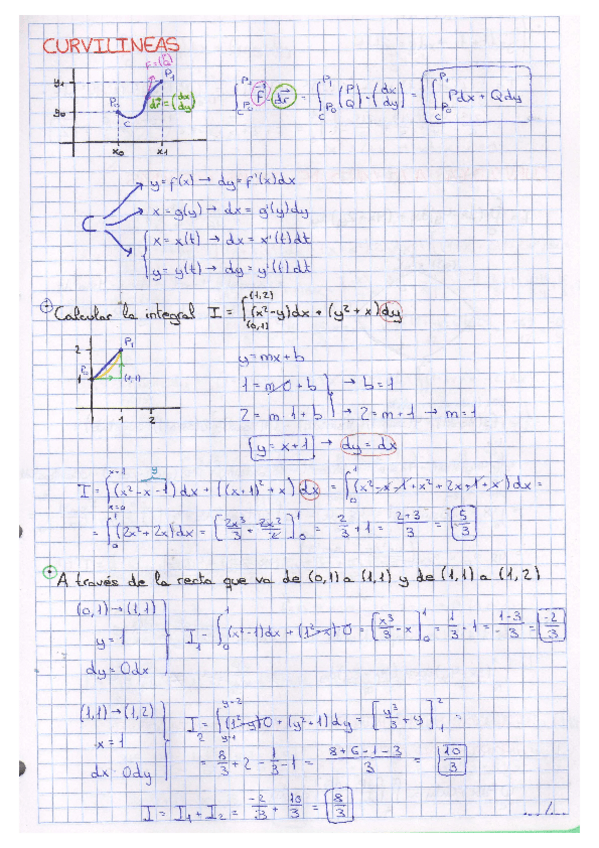 CURVILINEAS
F=(P Q)
y₁ P₁
y₀ P₀ dr⃗=(dx dy)
C
x₀ x₁
∫_C P₀^P₁ F⃗·dr⃗ = ∫_C P₀^P₁ (P Q)·(dx dy) = ∫_C P₀^P₁ Pdx + Qdy
C
y = f(x) → dy = f'(x)dx
x = g(y) → dx = g'(y)dy
x = x(t) → dx = x'(t)dt
y = y(t) → dy = y'(t)dt
Calcular la integral I = ∫_(0,1)^(1,2) (x²-y)dx + (y²+x)dy
2 P₁
1 P₀ (1,1)
1 2
y = mx + b
1 = m·0 + b → b = 1
2 = m·1 + b → 2 = m+1 → m = 1
y = x+1 → dy = dx
y
I = ∫_x=0^x=1 (x²-x-1)dx + ((x+1)²+x)dx = ∫_0^1 (x²-x-1+x²+2x+1+x)dx =
= ∫_0^1 (2x²+2x)dx = [2x³/3 + 2x²/2]_0^1 = 2/3 + 1 = 2+3/3 = 5/3
A través de la recta que va de (0,1) a (1,1) y de (1,1) a (1,2)
(0,1)→(1,1)
y = 1
dy = 0dx
I₁ = ∫_0^1 (x²-1)dx + (1²+x)·0 = [x³/3 - x]_0^1 = 1/3 - 1 = 1-3/3 = -2/3
(1,1)→(1,2)
x = 1
dx = 0dy
I₂ = ∫_y=1^y=2 (1²-y)0 + (y²+1)dy = [y³/3 + y]_1^2 =
= 8/3 + 2 - 1/3 - 1 = 8+6-1-3/3 = 10/3
I = I₁ + I₂ = -2/3 + 10/3 = 8/3